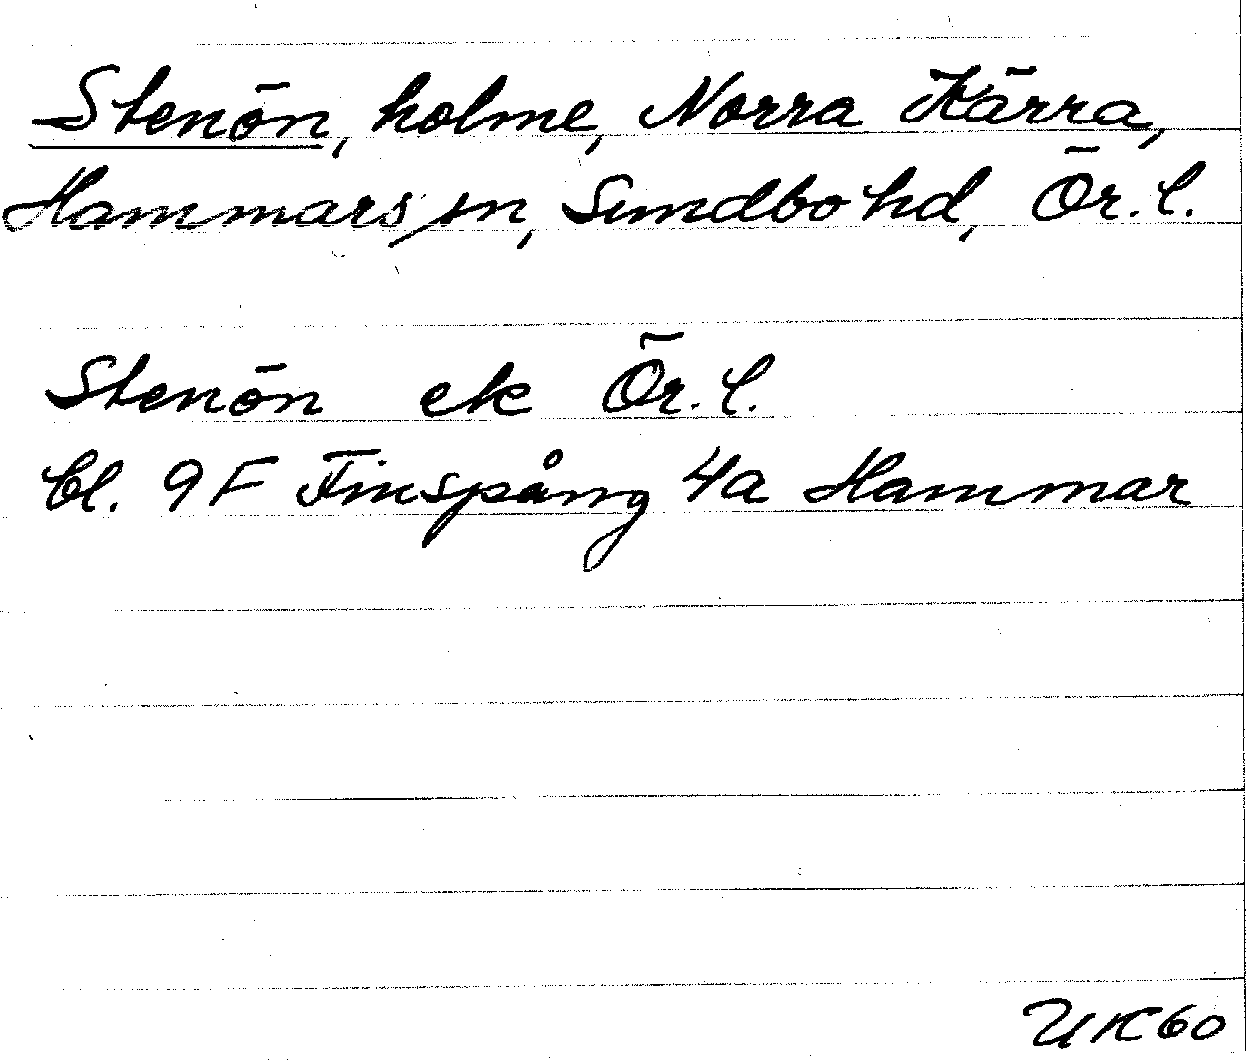 Stenön, holme, Norra Kärra,
Hammars sn, Sundbo hd, Ör. l.
Stenön ek Ör. l.
bl. 9F Finspång 4a Hammar
UK60